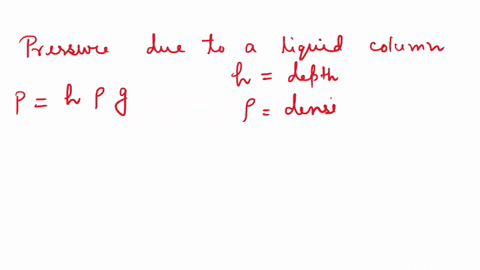 Pressure due to a liquid column
h = depth
P = h ρ g
ρ = densi